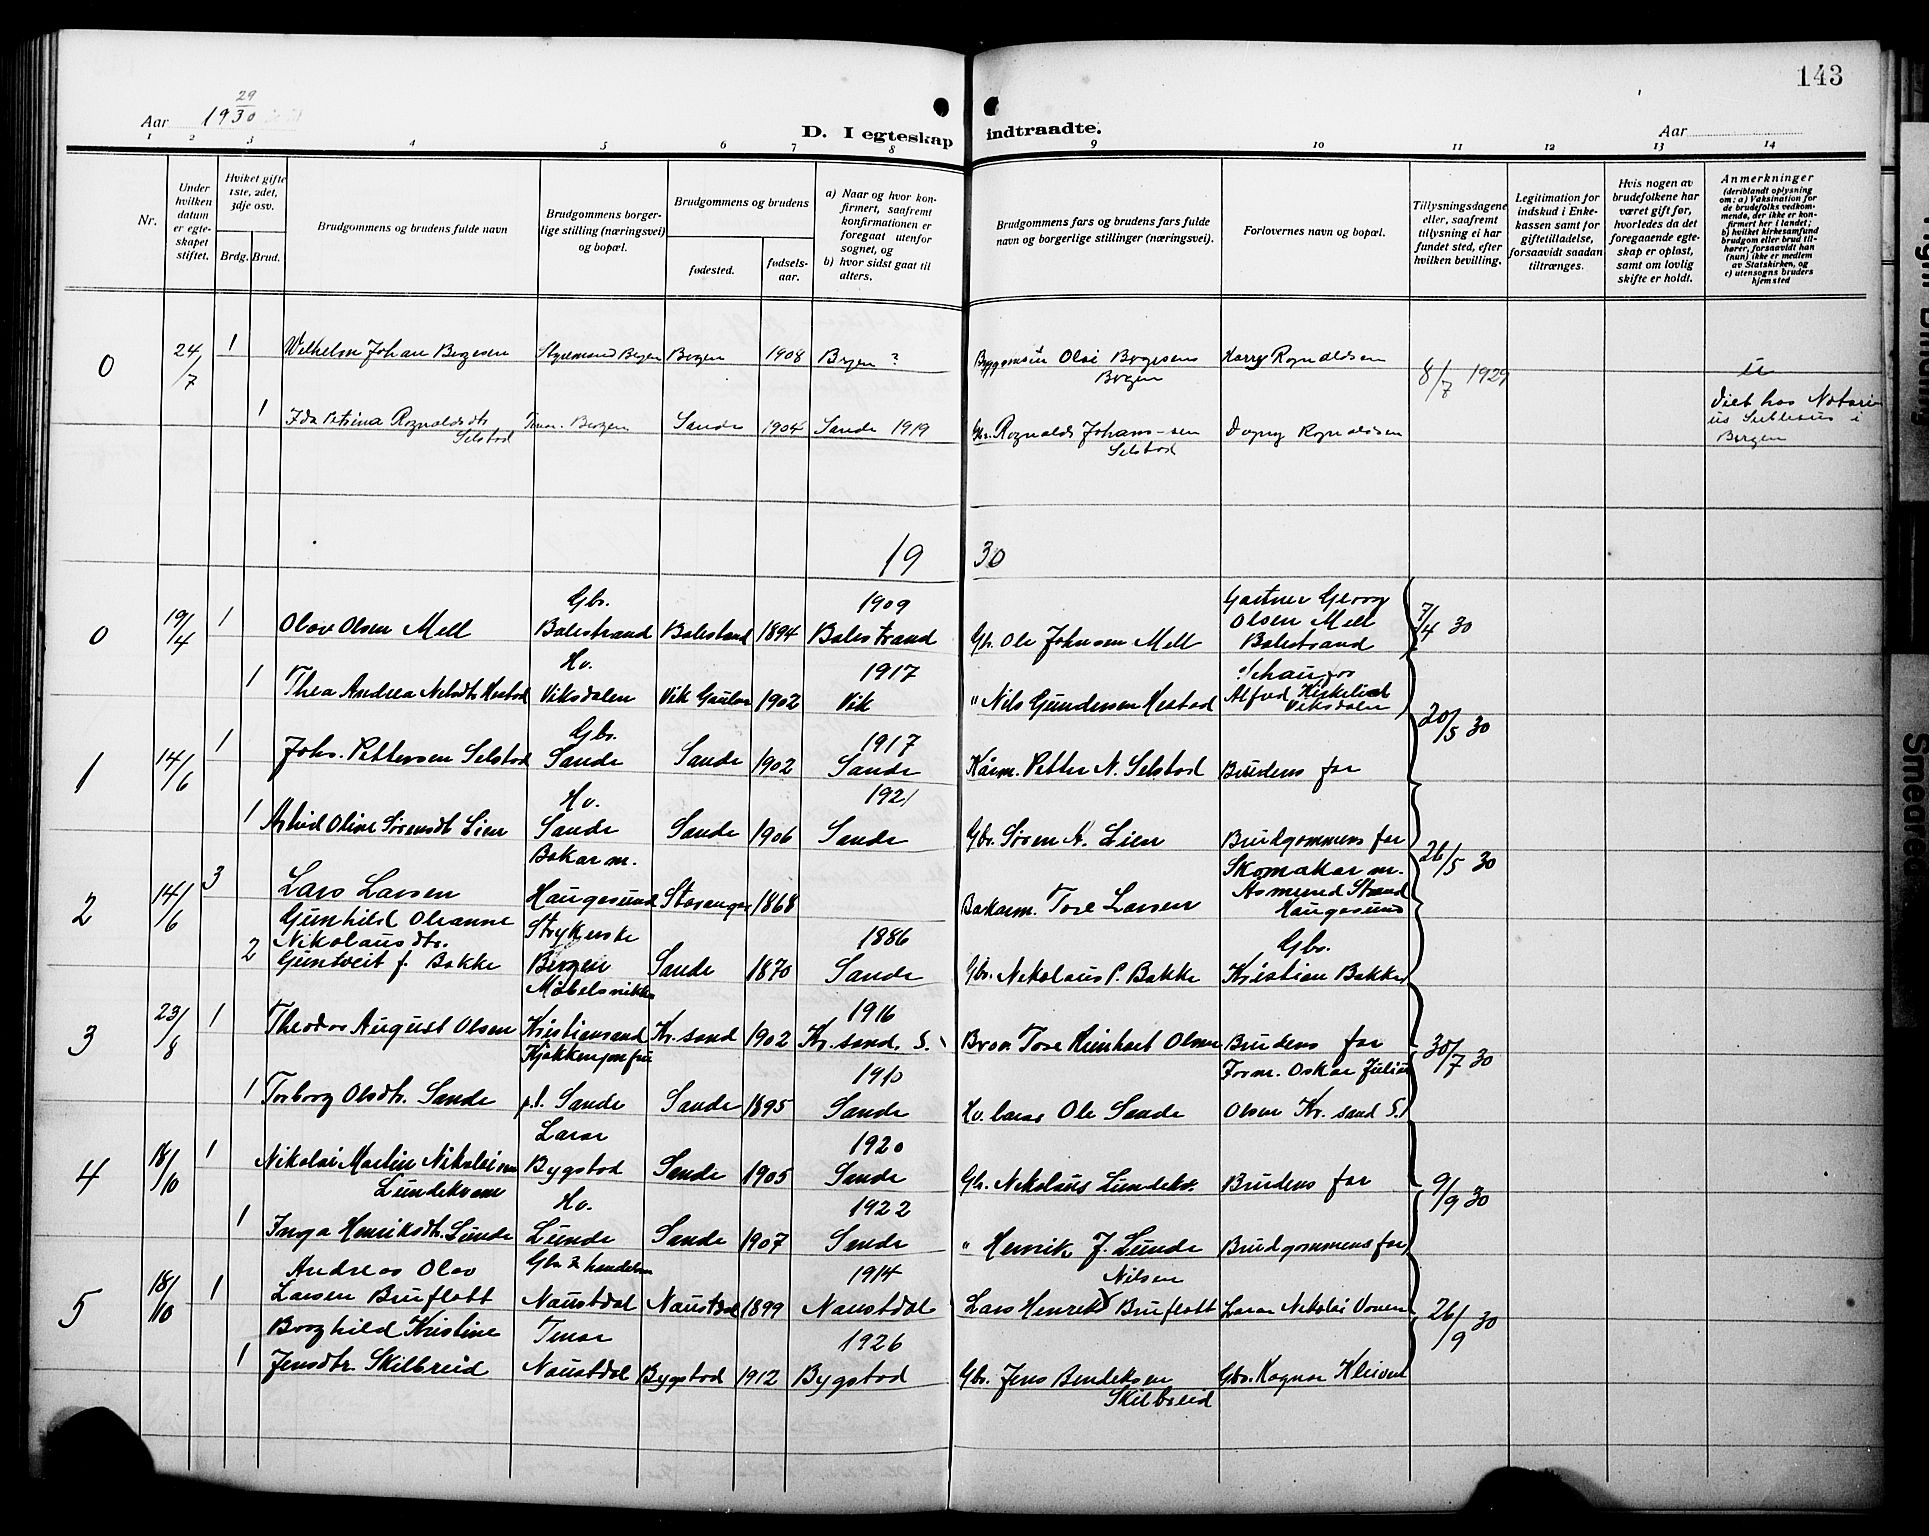 143
Aar 19 29/30
D. I egteskap indtraadte.
Aar
1 2 3 4 5 6 7 8 9 10 11 12 13 14
Nr.
Under hvilken datum er egteskapet stiftet.
Hviket gifte 1ste, 2det, 3dje osv.
Brdg. Brud.
Brudgommens og brudens fulde navn
Brudgommens borgerlige stilling (næringsvei) og bopæl.
Brudgommens og brudens
fødested.
fødselsaar.
a) Naar og hvor konfirmert, saafremt konfirmationen er foregaat utenfor sognet, og
b) hvor sidst gaat til alters.
Brudgommens fars og brudens fars fulde navn og borgerlige stillinger (næringsvei).
Forlovernes navn og bopæl.
Tillysningsdagene eller, saafremt tillysning ei har fundet sted, efter hvilken bevilling.
Legitimation for indskud i Enkekassen samt for giftetilladelse, forsaavidt saadan tiltrænges.
Hvis nogen av brudefolkene har været gift før, hvorledes da det foregaaende egteskap er opløst, samt om lovlig skifte er holdt.
Anmerkninger
(deriblandt oplysning om: a) Vaksination for de brudefolks vedkommende, der ikke er konfirmert her i landet; b) hvilket kirkesamfund brudgom eller brud tilhører, forsaavidt han (hun) ikke er medlem av Statskirken, og c) utensogns bruders hjemsted
0 24/7 1 Wilhelm Johan Bogesen Styrmand Bergen Bergen 1908 Bergen ? Olai Bogesens Bergen Harry Rognaldsen 8/7 1929
1 Ida Petrina Rognaldsdtr Selstad Bergen Sande 1904 Sande 1919 Gbr. Rognald Johans-sen Selstad Dagny Rognaldsen Viet hos Notarius i Bergen
19 30
0 19/4 1 Olav Olsen Mell Gbr. Balestrand Balestrand 1894 1909 Balestrand Gbr. Ole Johnsen Mell Gartner Georg Olsen Mell Balestrand 7/4 30
1 Thea Andrea Nelsdtr Hestad Hv. Viksdalen Vik Gaular 1902 1917 Vik " Nils Gundersen Hestad Alfred Kirkelid Viksdalen
1 14/6 1 Johs. Pettersen Selstad Gbr. Sande Sande 1902 1917 Sande Kårm. Petter N. Selstad Brudens far 20/5 30
1 Astrid Oline Sørensdt Lien Hv. Sande Sande 1906 1921 Sande Gbr. Søren A. Lien Brudgommens far
2 14/6 3 Lars Larsen Bakarm. Haugesund Stavanger 1868 Bakarm. Tore Larsen Skomakar m. Asmund Strand Haugesund 26/5 30
2 Gunhild Oleanne Nikolausdtr. Guntveit f. Bakke Strykerske Bergen Sande 1870 1886 Sande Gbr. Nikolaus P. Bakke Gbr. Kristian Bakke
3 23/8 1 Theodor August Olsen Møbelsnikker Kristiansand Kr. sand 1902 1916 Kr. sand. S. Tore Reinhart Olsen Brudens far 30/7 30
1 Torborg Olsdtr. Sande Kjøkkenjomfru p.t. Sande Sande 1895 1910 Sande Hv. lærar Ole Sande Form. Oskar Julius Olsen Kr. sand S.
4 18/10 1 Nikolai Martin Nikolaisen Lundekvam Lærar Bygstad Sande 1905 1920 Sande Gbr. Nikolaus Lundekv. Brudens far 9/9 30
1 Inga Henriksdtr. Lunde Hv. Lunde Sande 1907 1922 Sande " Henrik J. Lunde Brudgommens far
5 18/10 1 Andreas Olav Larsen Bruflott Gbr. & handelsm Naustdal Naustdal 1899 1914 Naustdal Lars Henrik Nilsen Bruflott Lærar Nikolai Vonen 26/9 30
1 Borghild Kristine Jensdtr. Skilbreid Tenar Naustdal Bygstad 1912 1926 Bygstad Gbr. Jens Bendiksen Skilbreid Gbr. Ragnar Kleivend
Smeared